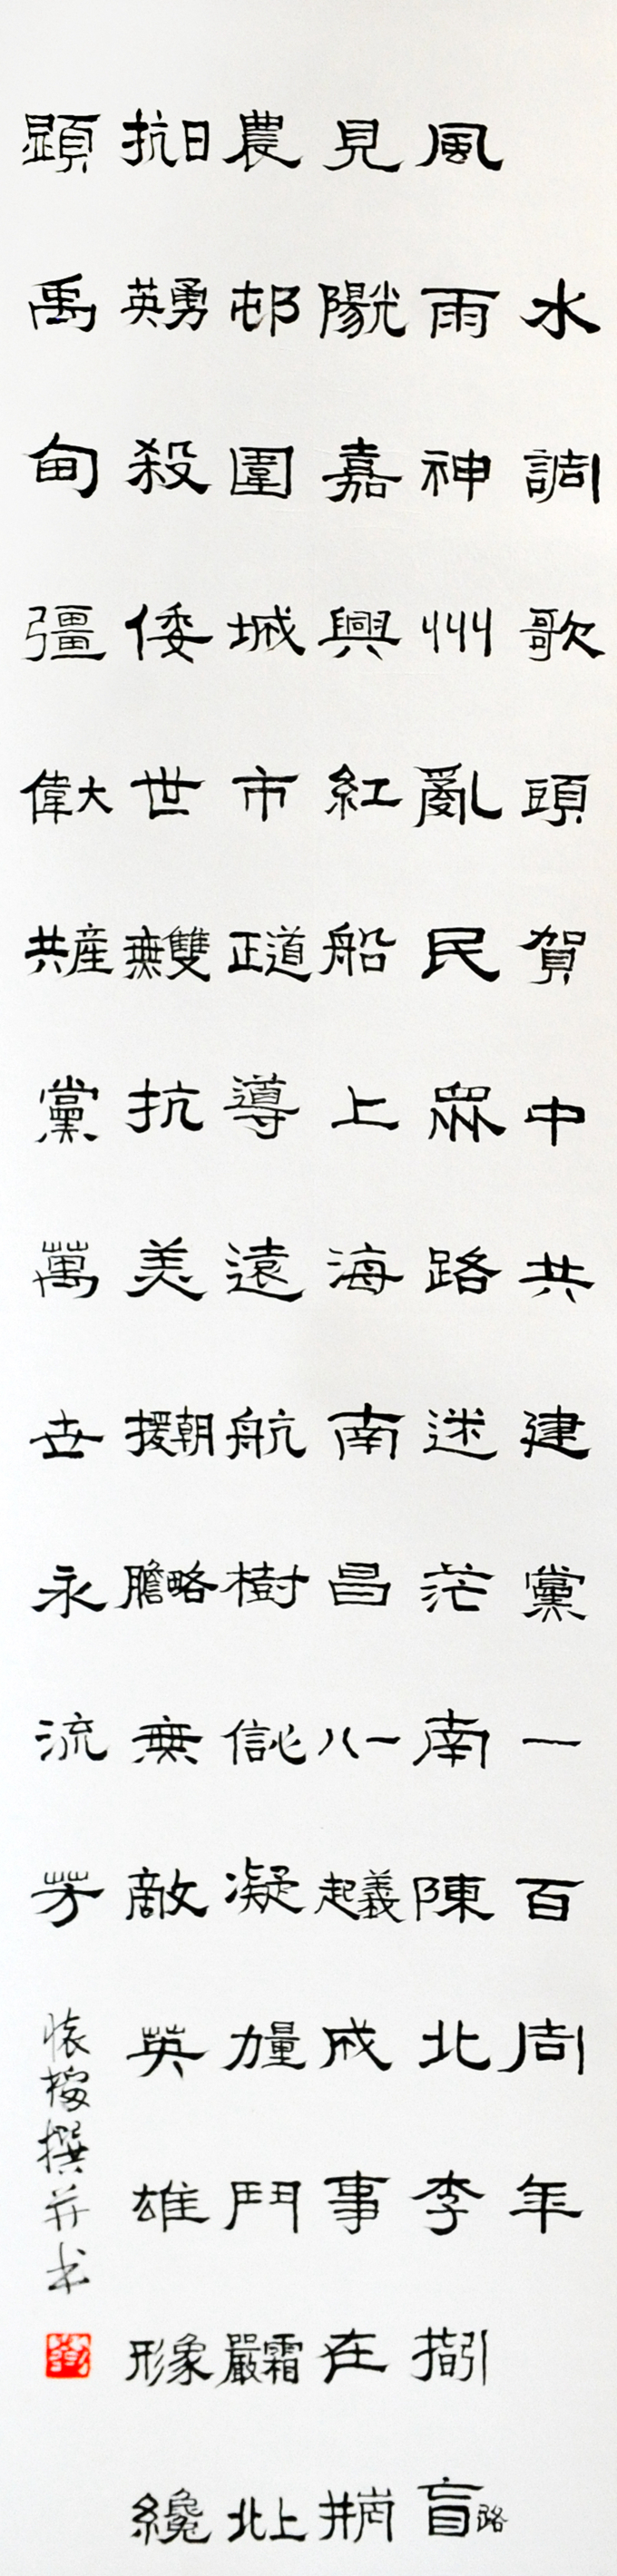 水調歌頭賀中共建黨一百周年
風雨神州亂民眾路迷茫南陳北李指引盲路
見陽光嘉興紅船上海南昌八一起義成事在井岡
農邨圍城市正道導遠航樹信心凝力量鬥嚴霜北上
抗日英勇殺倭世無雙抗美援朝膽略無敵英雄形象纔
顯禹甸彊偉大共產黨萬世永流芳
懷撰并书